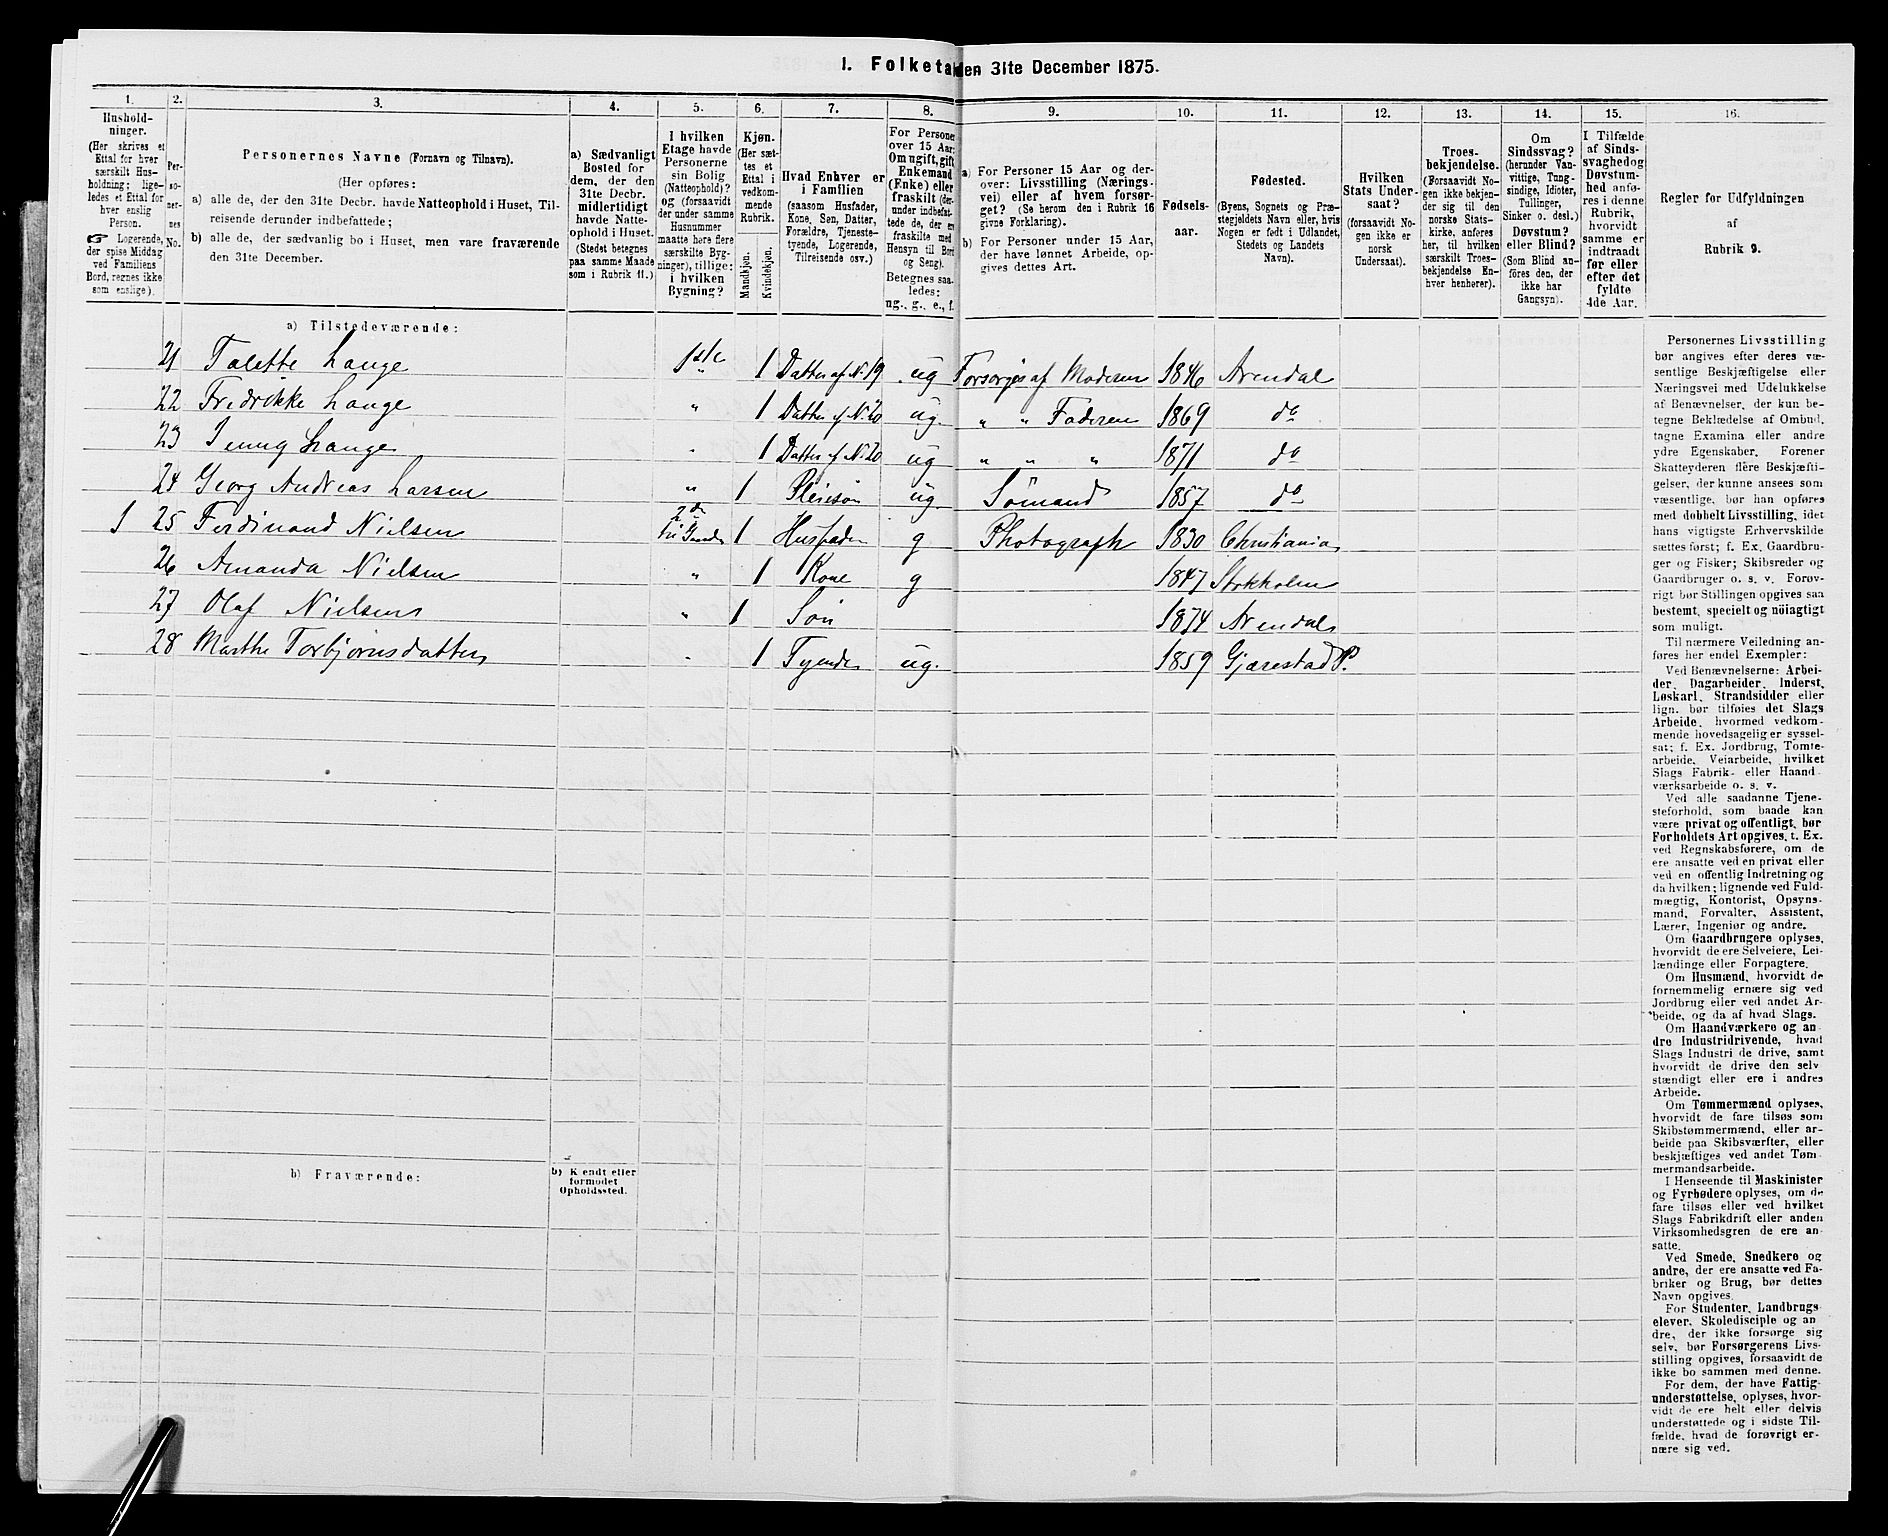 1. Folketal den 31te December 1875.
1. 2. 3. 4. 5. 6. 7. 8. 9. 10. 11. 12. 13. 14. 15. 16.
Hushold-
ninger.
(Her skrives et
Ettal for hver
særskilt Hus-
holdning; lige-
ledes et Ettal for
hver enslig
Person.
☞ Logerende,
der spise Middag
ved Familiens
Bord, regnes ikke
som enslige).
Per-
so-
ner-
nes
No.
Personernes Navne (Fornavn og Tilnavn).
(Her opføres:
a) alle de, der den 31te Decbr. havde Natteophold i Huset, Til-
reisende derunder indbefattede;
b) alle de, der sædvanlig bo i Huset, men vare fraværende
den 31te December.
a) Sædvanligt
Bosted for
dem, der den
31te Decbr.
midlertidigt
havde Natte-
ophold i Huset.
(Stedet betegnes
paa samme Maade
som i Rubrik 11.)
I hvilken
Etage havde
Personerne
sin Bolig
(Natteophold)?
og (forsaavidt
der under samme
Husnummer
maatte høre flere
særskilte Byg-
ninger), tillige:
i hvilken
Bygning?
Kjøn.
(Her sæt-
tes et
Ettal i
vedkom-
mende
Rubrik.
Mandkjøn.
Kvindekjøn.
Hvad Enhver er
i Familien
(saasom Husfader,
Kone, Søn, Datter,
Forældre, Tjeneste-
tyende, Logerende,
Tilreisende osv.)
For Personer
over 15 Aar:
Om ugift, gift,
Enkemand
(Enke) eller
fraskilt (der-
under indbefat-
tede de, der ere
fraskilte med
Hensyn til Bord
og Seng).
Betegnes saa-
ledes:
ug., g., e., f.
a) For Personer 15 Aar og der-
over: Livsstilling (Nærings-
vei) eller af hvem forsør-
get? (Se herom den i Rubrik 16
givne Forklaring).
b) For Personer under 15 Aar,
der have lønnet Arbeide, op-
gives dettes Art.
Fødsels-
aar.
Fødested.
(Byens, Sognets og Præ-
stegjeldets Navn eller, hvis
Nogen er født i Udlandet,
Stedets og Landets
Navn).
Hvilken
Stats Under-
saat?
(forsaavidt No-
gen ikke er
norsk
Undersaat).
Troes-
bekjendelse.
(Forsaavidt No-
gen ikke bekjen-
der sig til den
norske Stats-
kirke, anføres
her, til hvilken
særskilt Troes-
bekjendelse En-
hver henhører).
Om
Sindssvag?
(herunder Van-
vittige, Tung-
sindige, Idioter,
Tullinger,
Sinker o. desl.)
Døvstum?
eller Blind?
(Som Blind an-
føres den, der
ikke har
Gangsyn).
I Tilfælde
af Sinds-
svaghed og
Døvstum-
hed anfø-
res i denne
Rubrik,
hvorvidt
samme er
indtraadt
før eller
efter det
fyldte
4de Aar.
Regler for Udfyldningen
af
Rubrik 9.
a) Tilstedeværende:
21 Talette Lange 1ste 1 Datter af N. 19 ug Forsørges af Moderen 1846 Arendal
22 Fredrikke Lange " 1 Datter af N. 20 ug. " " Faderen 1869 do
23 Jenny Lange " 1 Datter af N. 20 ug " " " 1871 do
24 Georg Andreas Larsen " 1 Pleiesøn ug Sømand 1857 do
1 25 Ferdinand Nielsen 2den 1 Husfader g Photograph 1830 Christiania
26 Amanda Nielsen " 1 Kone g 1847 Stokholm
27 Olaf Nielsen " 1 Søn 1874 Arendal
28 Marthe Torbjørnsdatter " 1 Tyende ug. 1859 Gjærestad P.
b) Fraværende:
b) Kjendt eller
formodet
Opholdssted.
Personernes Livsstilling
bør angives efter deres væ-
sentlige Beskjæftigelse eller
Næringsvei med Udelukkelse
af Benævnelser, der kun be-
tegne Beklædelse af Ombud,
tagne Examina eller andre
ydre Egenskaber. Forener
Skatteyderen flere Beskjæfti-
gelser, der kunne ansees som
væsentlige, bør han opføres
med dobbelt Livsstilling, idet
hans vigtigste Erhvervskilde
sættes først; f. Ex. Gaardbru-
ger og Fisker; Skibsreder og
Gaardbruger o. s. v. Forøv-
rigt bør Stillingen opgives saa
bestemt, specielt og nøiagtigt
som muligt.
Til nærmere Veiledning an-
føres her endel Exempler:
Ved Benævnelserne: Arbei-
der, Dagarbeider, Inderst,
Løskarl, Strandsidder eller
lign. bør tilføies det Slags
Arbeide, hvormed vedkom-
mende hovedsagelig er syssel-
sat; f. Ex. Jordbrug, Tomte-
arbeide, Veiarbeide, hvilket
Slags Fabrik- eller Haand-
værksarbeide o. s. v.
Ved alle saadanne Tjene-
steforhold, som baade kan
være privat og offentligt, bør
Forholdets Art opgives, t. Ex.
ved Regnskabsførere, om de
ere ansatte ved en privat eller
ved en offentlig Indretning og
da hvilken; lignende ved Fuld-
mægtig, Kontorist, Opsyns-
mand, Forvalter, Assistent,
Lærer, Ingeniør og andre.
Om Gaardbrugere oplyses,
hvorvidt de ere Selveiere, Lei-
lændinge eller Forpagtere.
Om Husmænd, hvorvidt de
fornemmelig ernære sig ved
Jordbrug eller ved andet Ar-
beide, og da af hvad Slags.
Om Haandværkere og an-
dre Industridrivende, hvad
Slags Industri de drive, samt
hvorvidt de drive den selv
stændigt eller ere i andres
Arbeide.
Om Tømmermænd oplyses,
hvorvidt de fare tilsøs som
Skibstømmermænd, eller ar-
beide paa Skibsværfter, eller
beskjæftiges ved andet Tøm-
mermandsarbeide.
I Henseende til Maskinister
og Fyrbødere oplyses, om de
fare tilsøs eller ved hvilket
Slags Fabrikdrift eller anden
Virksomhedsgren de ere an-
satte.
Ved Smede, Snedkere og
andre, der ere ansatte ved Fa-
briker og Brug, bør dettes
Navn opgives.
For Studenter, Landbrugs-
elever, Skoledisciple og an-
dre, der ikke forsørge sig
selv, bør Forsørgerens Livs-
stilling opgives, forsaavidt de
ikke bo sammen med denne.
For dem, der have Fattig-
understøttelse, oplyses, hvor-
vidt de ere helt eller delvis
understøttede og i sidste Til-
fælde, hvad de forøvrigt er-
nære sig ved.